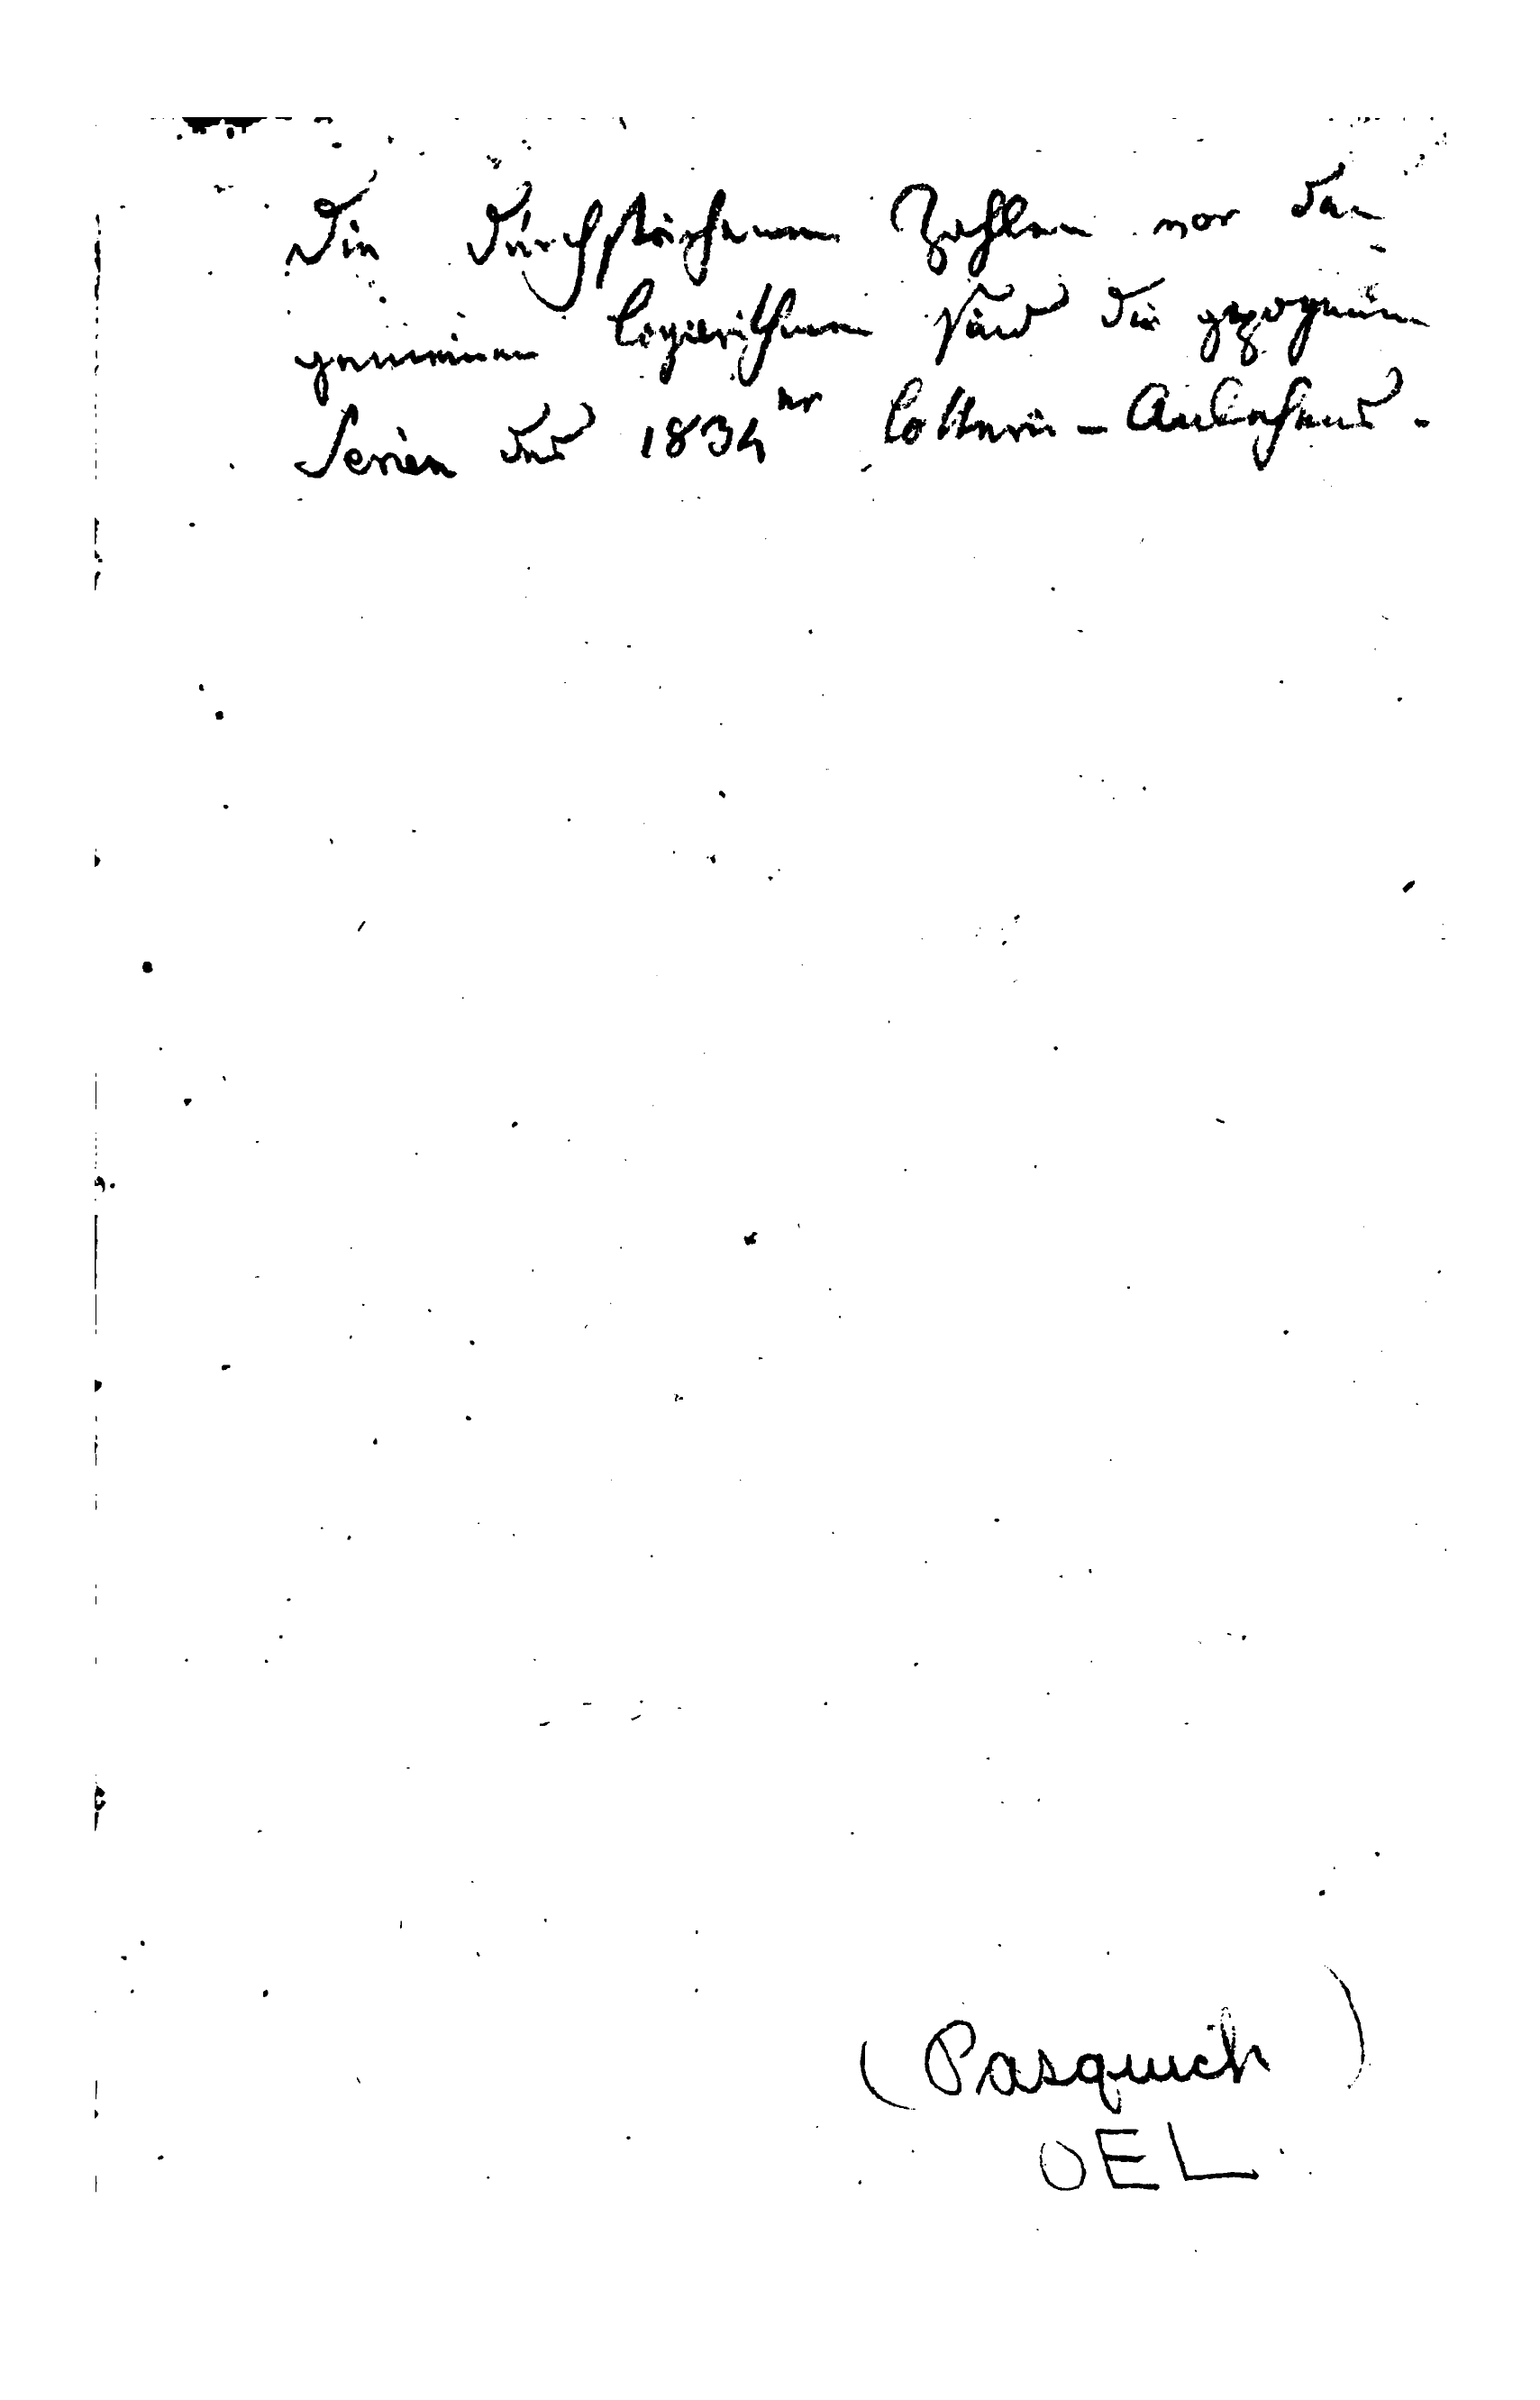 Die durchstrichenen Zahlen vor den
gemeinen Logarithmen sind die gezogenen
Serien des 1834er Lotterie-Anlehens.
(Pasquich)
OEL